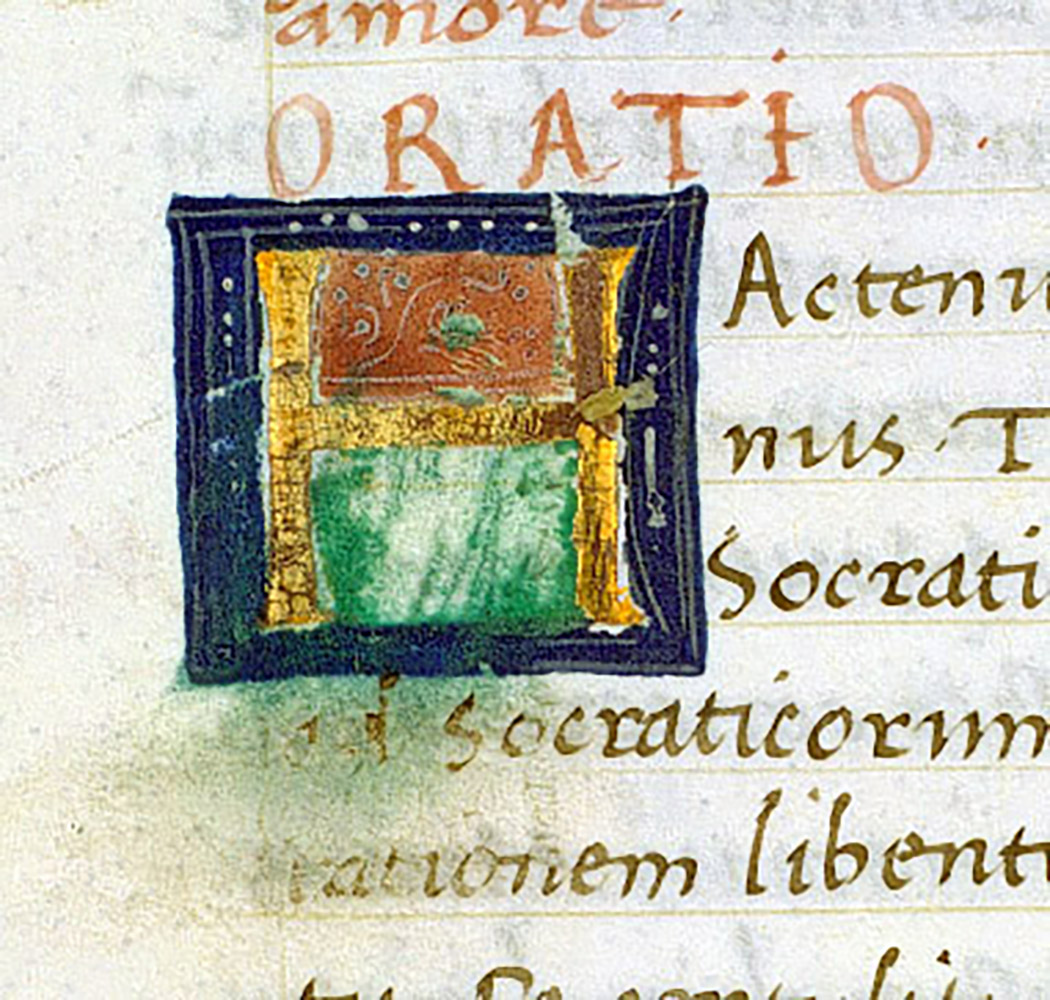 amore.
ORATIO.
HActenu
nus T
Socrati
ad Socraticorum
rationem libent